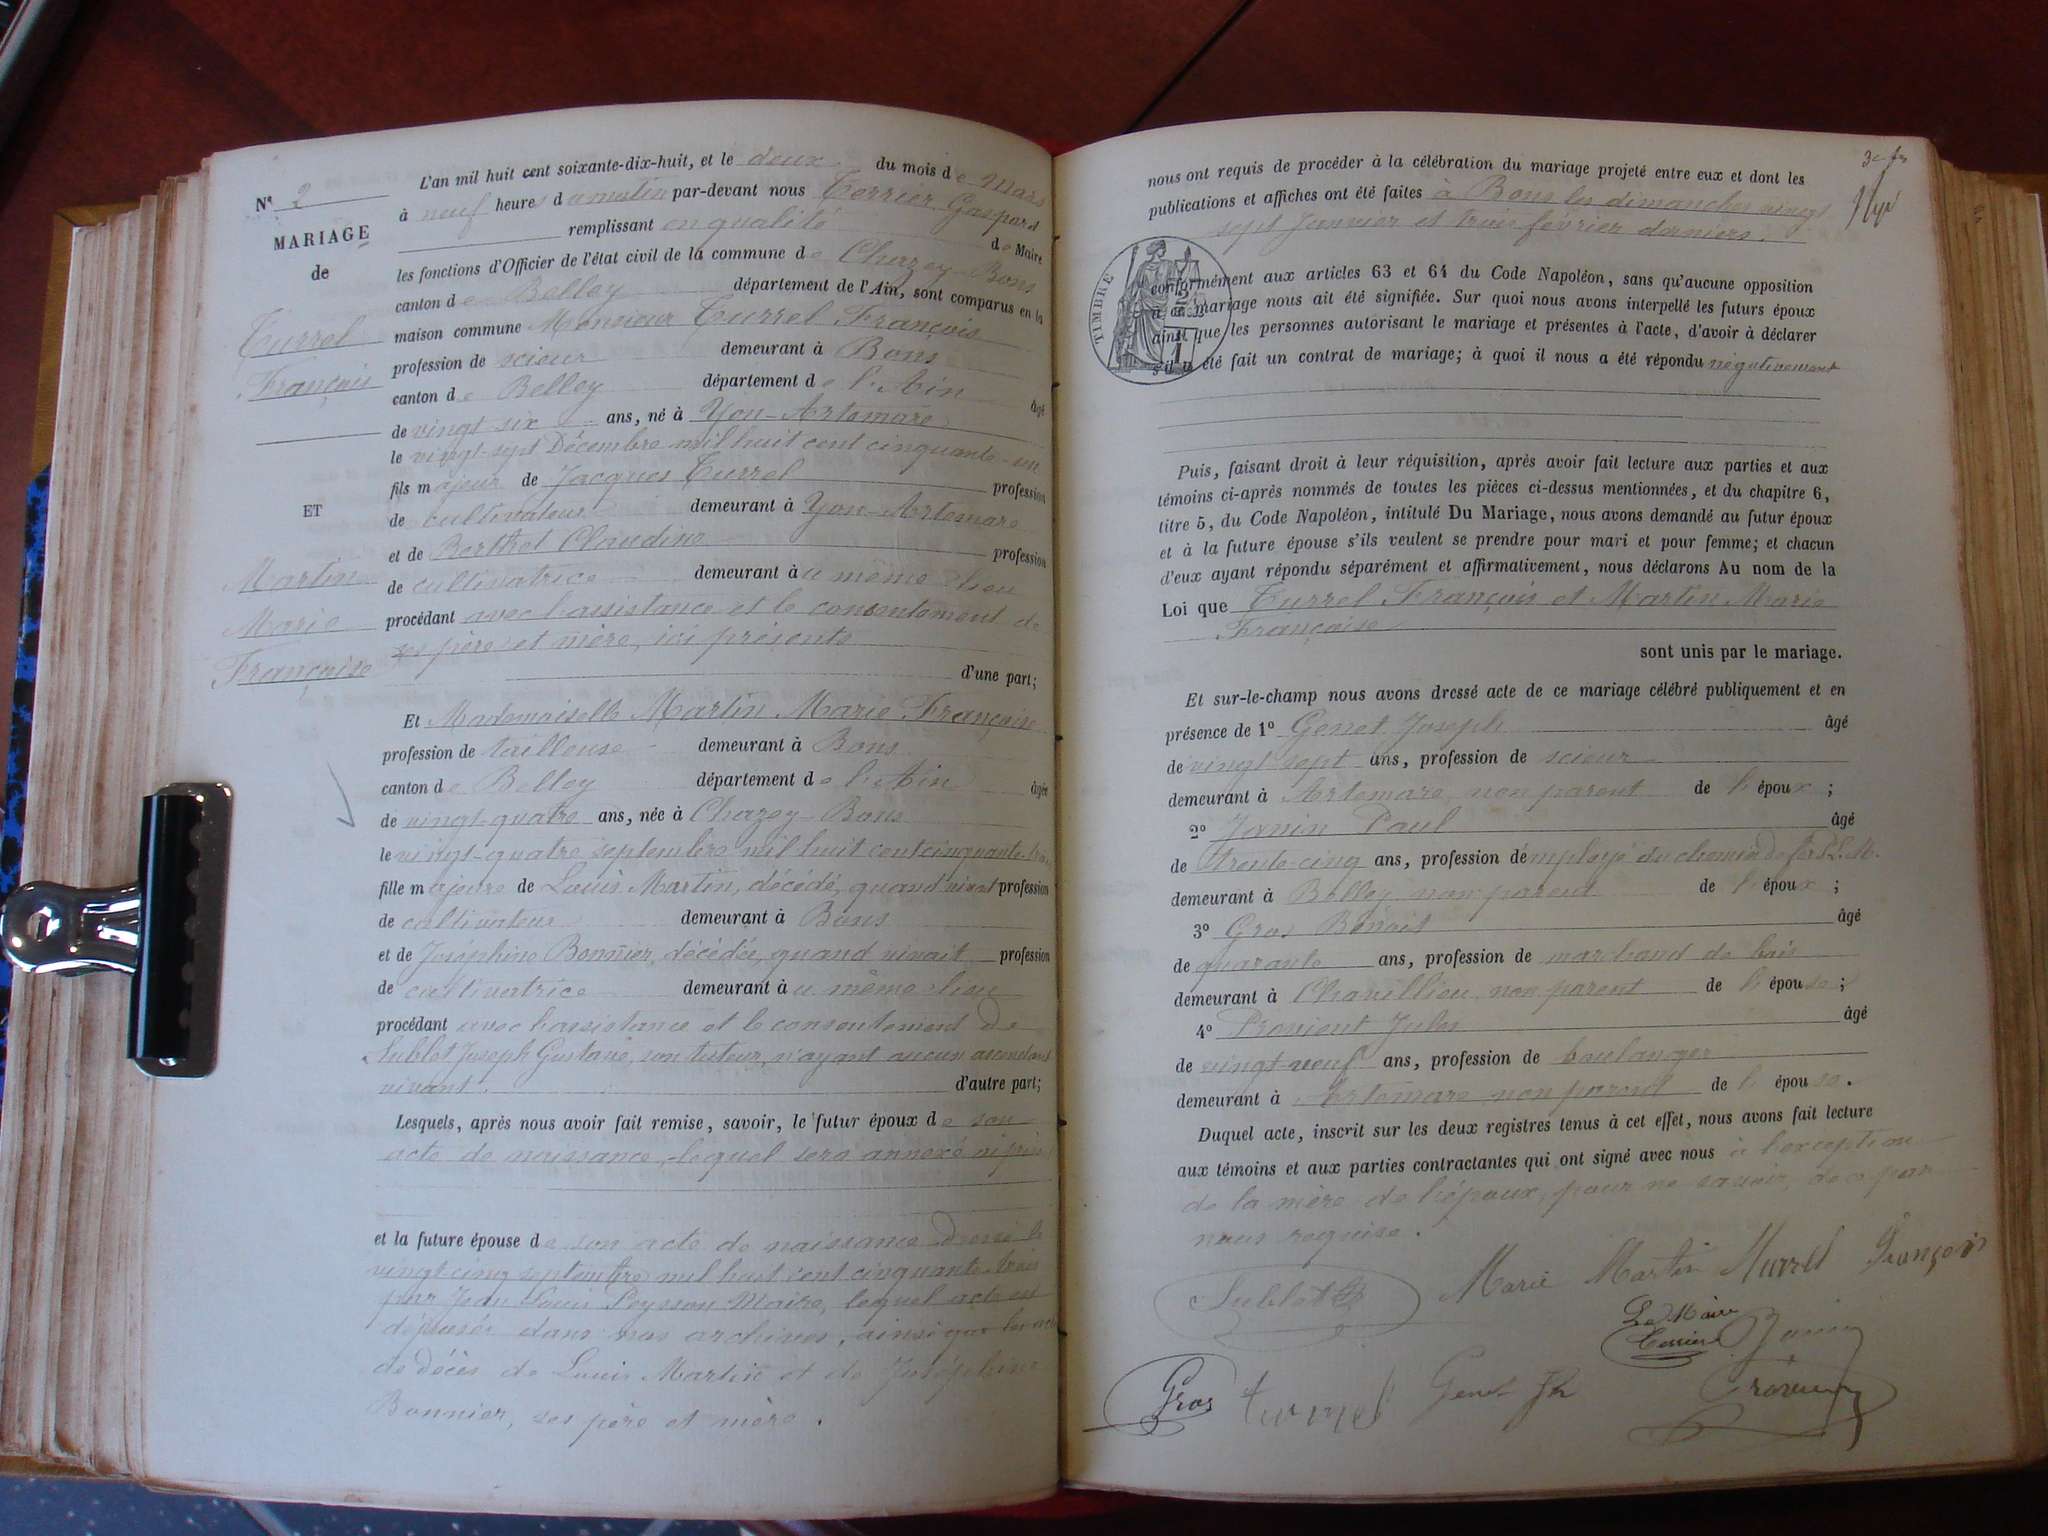 Nº 2
MARIAGE
de
Turrel
François
ET
Martin
Marie
Françoise
L'an mil huit cent soixante-dix-huit, et le deux du mois de Mars
à neuf heures du matin par-devant nous Terrier Gaspard
remplissant en qualité de Maire
les fonctions d'Officier de l'état civil de la commune de Chazey-Bons
canton de Belley département de l'Ain, sont comparus en la
maison commune Monsieur Turrel François
profession de scieur demeurant à Bons
canton de Belley département de l'Ain âgé
de vingt six ans, né à Yon-Artemare
le vingt-sept Décembre mil huit cent cinquante-un
fils majeur de Jacques Turrel profession
de cultivateur demeurant à Yon-Artemare
et de Berthet Claudine profession
de cultivatrice demeurant au même lieu
procédant avec l'assistance et le consentement de
ses père et mère, ici présents
d'une part;
Et Mademoiselle Martin Marie Françoise
profession de tailleuse demeurant à Bons
canton de Belley département de l'Ain âgée
de vingt-quatre ans, née à Chazey-Bons
le vingt-quatre septembre mil huit cent cinquante-trois
fille majeure de Louis Martin, décédé, quand vivait profession
de cultivateur demeurant à Bons
et de Joséphine Bonnier, décédée, quand vivait profession
de cultivatrice demeurant au même lieu
procédant avec l'assistance et le consentement de
Sublet Joseph Gustave, son tuteur, n'ayant aucun ascendant
vivant. d'autre part;
Lesquels, après nous avoir fait remise, savoir, le futur époux de son
acte de naissance, lequel sera annexé
et la future épouse de son acte de naissance dressé le
vingt cinq septembre mil huit cent cinquante-trois
par Jean Louis Peysson Maire, lequel acte est
déposée dans nos archives, ainsi que les actes
de décès de Louis Martin et de Joséphine
Bonnier, ses père et mère.
nous ont requis de procéder à la célébration du mariage projeté entre eux et dont les
publications et affiches ont été faites à Bons les dimanches vingt
sept Janvier et trois février derniers.
TIMBRE
conformément aux articles 63 et 64 du Code Napoléon, sans qu'aucune opposition
à ce mariage nous ait été signifiée. Sur quoi nous avons interpellé les futurs époux
ainsi que les personnes autorisant le mariage et présentes à l'acte, d'avoir à déclarer
s'il a été fait un contrat de mariage; à quoi il nous a été répondu négativement
Puis, faisant droit à leur réquisition, après avoir fait lecture aux parties et aux
témoins ci-après nommés de toutes les pièces ci-dessus mentionnées, et du chapitre 6,
titre 5, du Code Napoléon, intitulé Du Mariage, nous avons demandé au futur époux
et à la future épouse s'ils veulent se prendre pour mari et pour femme; et chacun
d'eux ayant répondu séparément et affirmativement, nous déclarons Au nom de la
Loi que Turrel François et Martin Marie
Françoise
sont unis par le mariage.
Et sur-le-champ nous avons dressé acte de ce mariage célébré publiquement et en
présence de 1º Genet Joseph âgé
de vingt sept ans, profession de scieur
demeurant à Artemare, non parent de l'époux;
2º Janin Paul âgé
de trente-cinq ans, profession d'employé du chemin de fer P.L.M.
demeurant à Belley non parent de l'époux;
3º Gros Benoit âgé
de quarante ans, profession de marchand de bois
demeurant à Chavillieu non parent de l'épouse;
4º Provient Jules âgé
de vingt-neuf ans, profession de boulanger
demeurant à Artemare non parent de l'épouse.
Duquel acte, inscrit sur les deux registres tenus à cet effet, nous avons fait lecture
aux témoins et aux parties contractantes qui ont signé avec nous à l'exception
de la mère de l'époux, pour ne savoir, de ce par
nous requise.
Sublet Marie Martin Turrel François
Le Maire
Terrier Janin
Gros turrel Genet Jh